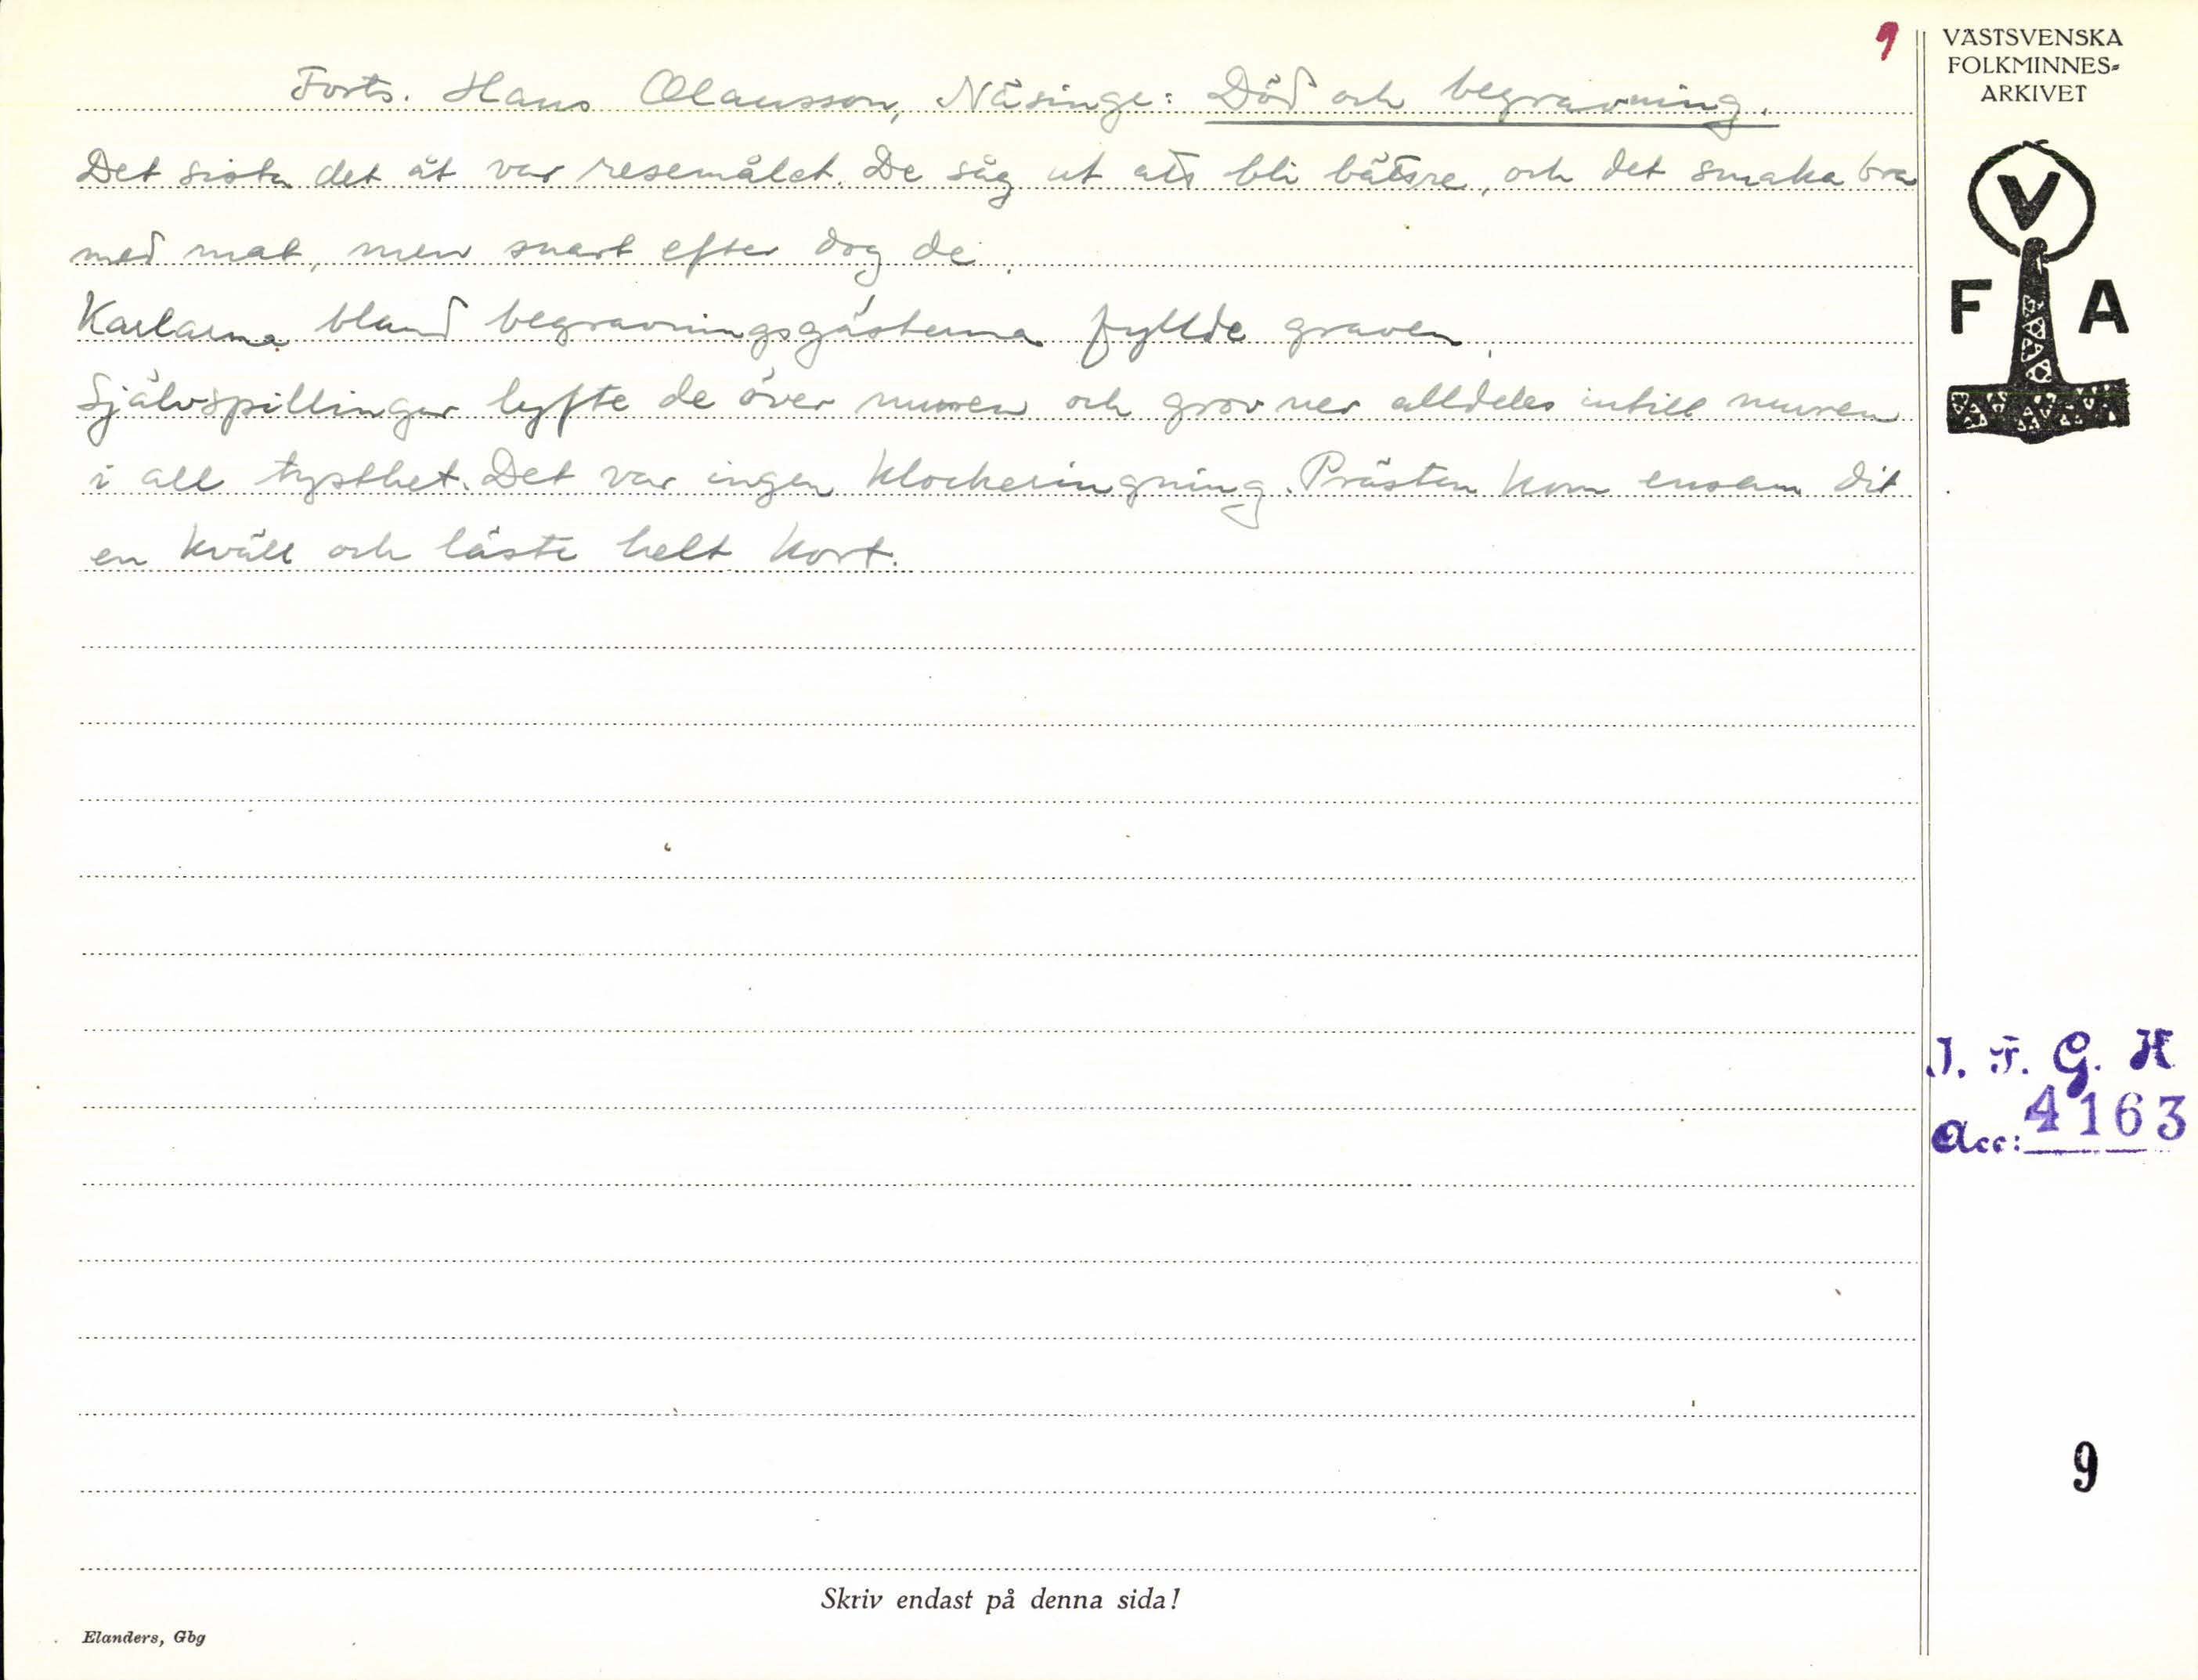 9
VÄSTSVENSKA
FOLKMINNES-
ARKIVET
Forts. Hans Olausson, Näsinge: Död och begravning.
Det sista det åt var resemålet. De såg ut att bli bättre, och det smaka bra
med mat, men snart efter dog de.
Karlarna bland begravningsgästerna fyllde graven.
Självspillingar lyfte de över muren och grov ner alldeles intill muren
i all tysthet. Det var ingen klockeringning. Prästen kom ensam dit
en kväll och läste helt kort.
V
F A
I. F. G. H
Acc: 4163
9
Skriv endast på denna sida!
Elanders, Gbg